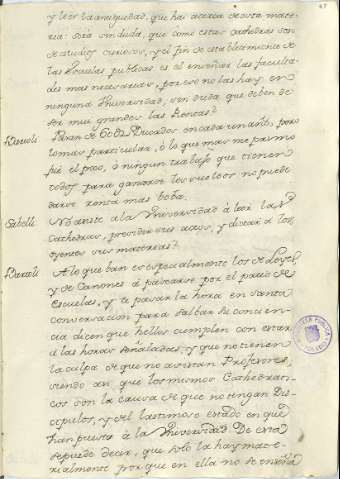 y leer la antiguedad, que hai acerca de esta mate-
ria: será sin duda, que como estas Cathedras son
de estudios serios, y el fin de establecimiento de
las Escuelas publicas, es el enseñar las faculta-
des mas necesarias, por eso no las hay en
ninguna Universidad, sin duda que deben de
ser mui grandes las Rentas?
Pasan de Ducados en cada un año, pero
lo mas particular, ó lo que mas me pasmo
fue el poco, ó ningun trabajo que tienen
todos para ganarse los sueldos no puede
darse renta mas boba.
No asiste a la Universidad à leer las
Cathedras, presidir sus actos, y dictar á los
oyentes sus materias?
A lo que ban especialmente los de Leyes,
y de Canones á pasearse por el patio de
Escuelas, y a pasar la hora en santa
conversacion para salbar su concien-
cia dicen que hellos cumplen con estar
á las horas señaladas, y que no tienen
la culpa de que no asistan Profesores,
siendo asi que los mismos Cathedrati-
cos son la causa de que no tengan Dis-
cipulos, y del lastimoso estado en que
han puesto à la Universidad De esta
se puede decir, que solo la hay mate-
rialmente porque en ella no se enseña